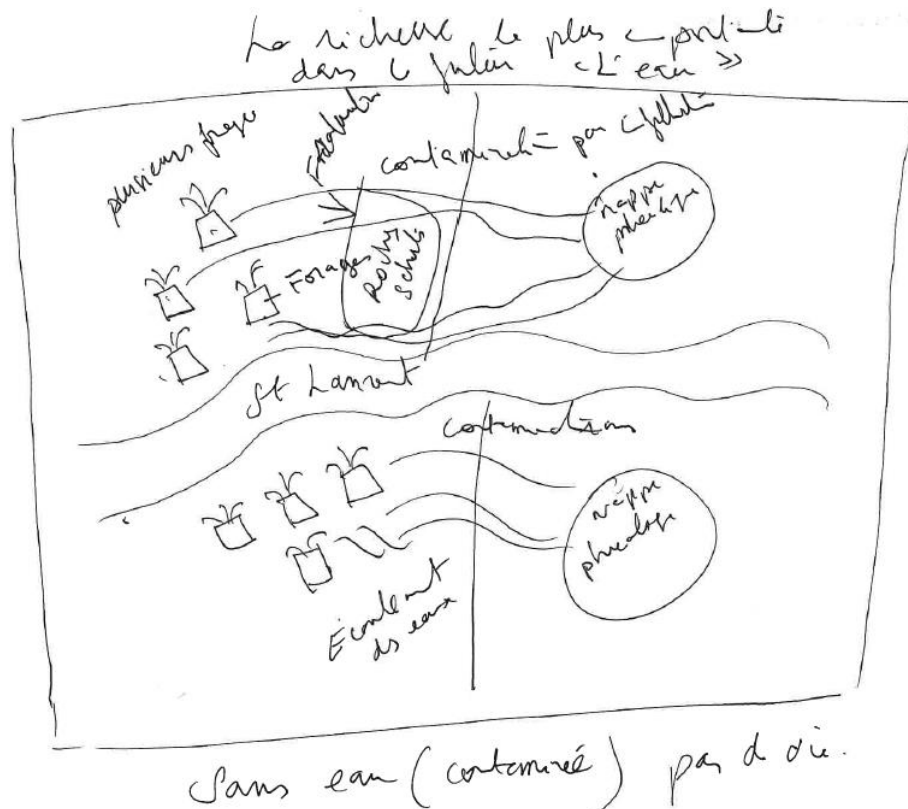 La richesse la plus importante
dans le futur « L'eau »
plusieurs forages
contamination par
nappe
phréatique
Forages
Roche
Schiste
St Laurent
contaminations
nappe
phréatique
Écoulement
des eaux
Sans eau (contaminée) pas de vie.